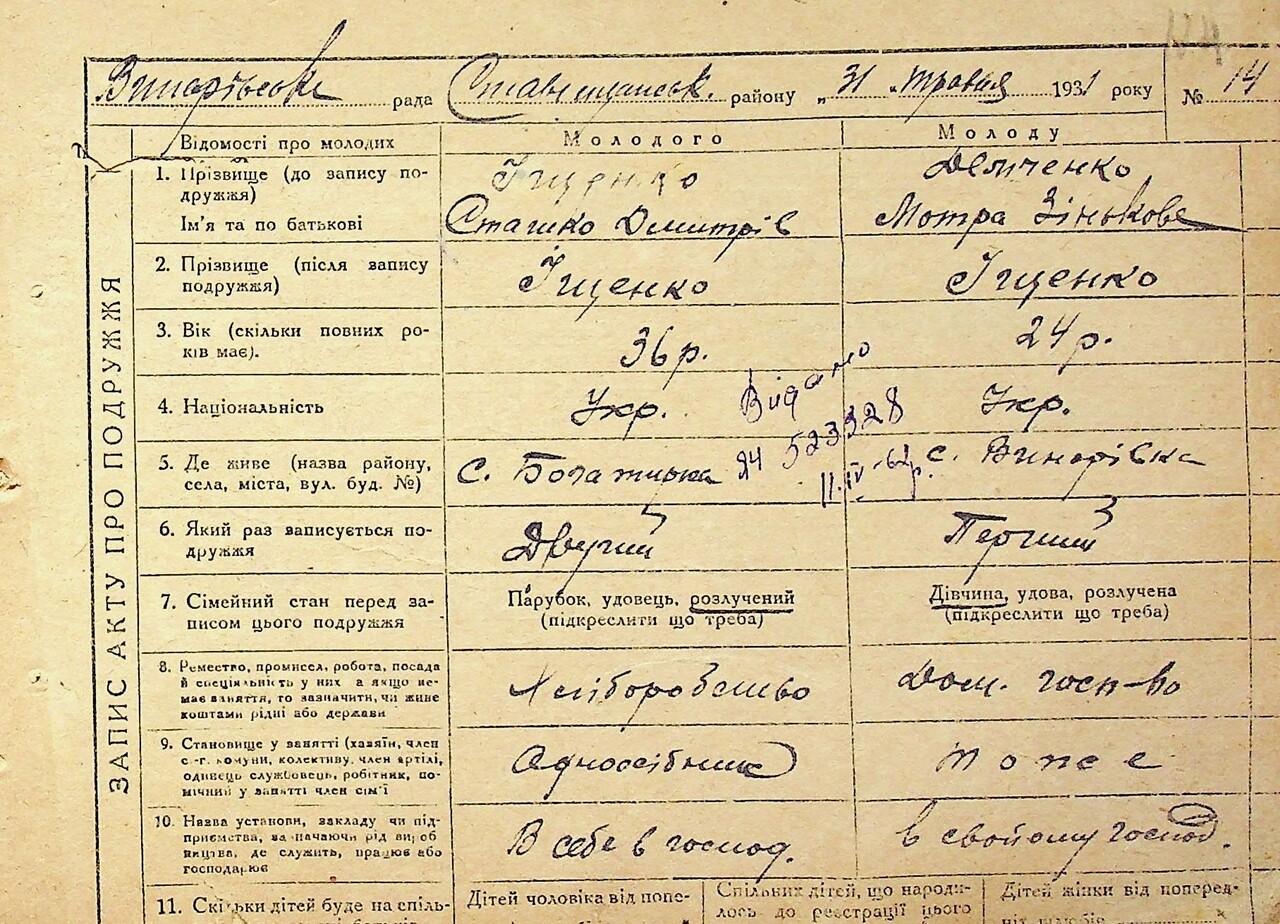 Винарівська рада Ставищанськ. району „31 „ травня 1931 року № 14
ЗАПИС АКТУ ПРО ПОДРУЖЖЯ
Відомості про молодих
Молодого
Молоду
1. Прізвище (до запису по-
дружжя)
Іщенко
Демченко
Ім'я та по батькові
Сташко Дмитрів
Мотра Зінькова
2. Прізвище (після запису
подружжя)
Іщенко
Іщенко
3. Вік (скільки повних ро-
ків має).
36 р.
24 р.
4. Національність
Укр.
Укр.
Видано
ЯЧ 523328
11.IV-62 р.
5. Де живе (назва району,
села, міста, вул. буд. №)
с. Богатирка
с. Винарівка
6. Який раз записується по-
дружжя
Другий
Перший
7. Сімейний стан перед за-
писом цього подружжя
Парубок, удовець, розлучений
(підкреслити що треба)
Дівчина, удова, розлучена
(підкреслити що треба)
8. Ремество, промисел, робота, посада
й спеціяльність у них а якщо не-
має заняття, то зазначити, чи живе
коштами рідні або держави
Хліборобство
Дом. госп-во
9. Становище у занятті (хазяїн, член
с.-г. комуни, колективу, член артілі,
одинець службовець, робітник, по-
мічний у занятті член сім'ї
Одноосібник
тоже
10. Назва установи, закладу чи під-
приємства, зазначаючи рід вироб
ництва, де служить, працює або
господарює
В себе в господ.
в свойому господ.
11. Скільки дітей буде на спіль-
Дітей чоловіка від попе-
Спільних дітей, що народи-
лось до реєстрації цього
Дітей жінки від поперед-